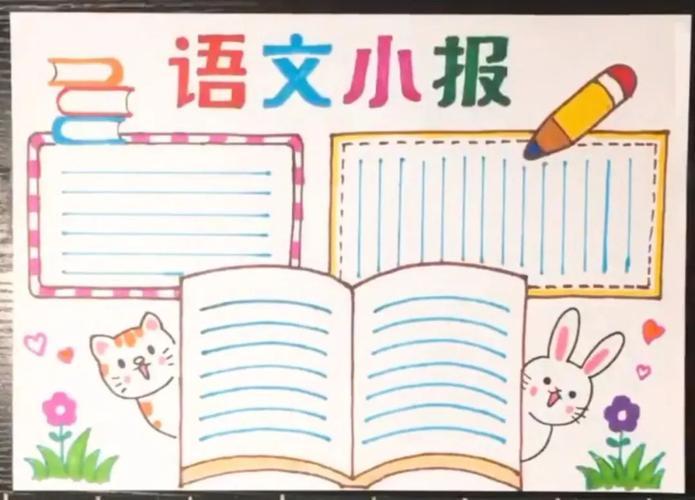 语文小报